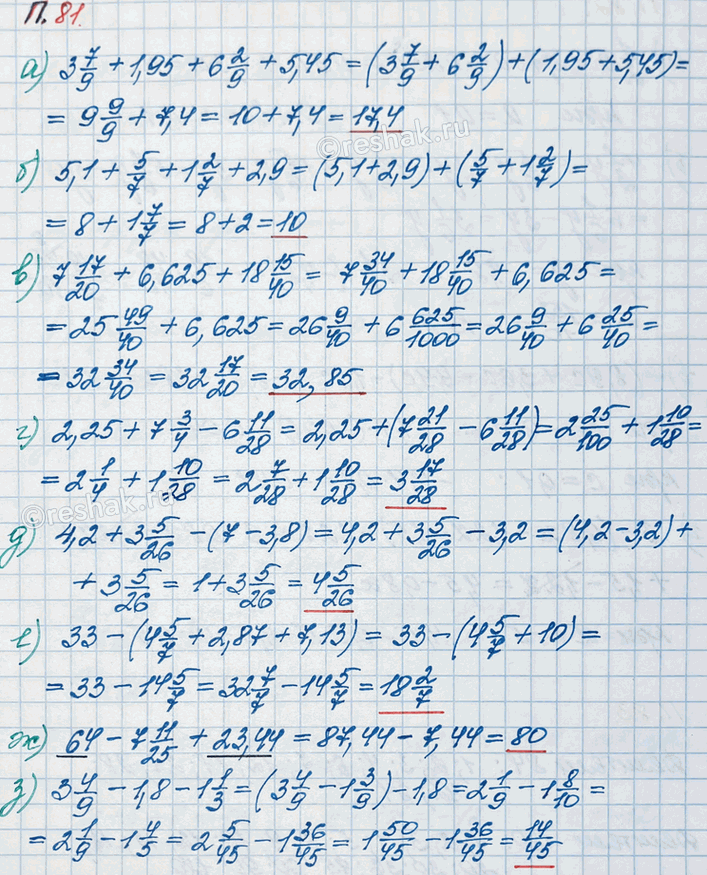 П. 81.
а) 3 7/9 + 1,95 + 6 2/9 + 5,45 = (3 7/9 + 6 2/9) + (1,95 + 5,45) =
= 9 9/9 + 7,4 = 10 + 7,4 = 17,4
© reshak.ru
б) 5,1 + 5/7 + 1 2/7 + 2,9 = (5,1 + 2,9) + (5/7 + 1 2/7) =
= 8 + 1 7/7 = 8 + 2 = 10
в) 7 17/20 + 6,625 + 18 15/40 = 7 34/40 + 18 15/40 + 6,625 =
= 25 49/40 + 6,625 = 26 9/40 + 6 625/1000 = 26 9/40 + 6 25/40 =
= 32 34/40 = 32 17/20 = 32,85
г) 2,25 + 7 3/4 - 6 11/28 = 2,25 + (7 21/28 - 6 11/28) = 2 25/100 + 1 10/28 =
= 2 1/4 + 1 10/28 = 2 7/28 + 1 10/28 = 3 17/28
© reshak.ru
д) 4,2 + 3 5/26 - (7 - 3,8) = 4,2 + 3 5/26 - 3,2 = (4,2 - 3,2) +
+ 3 5/26 = 1 + 3 5/26 = 4 5/26
е) 33 - (4 5/7 + 2,87 + 7,13) = 33 - (4 5/7 + 10) =
= 33 - 14 5/7 = 32 7/7 - 14 5/7 = 18 2/7
ж) 64 - 7 11/25 + 23,44 = 87,44 - 7,44 = 80
з) 3 4/9 - 1,8 - 1 1/3 = (3 4/9 - 1 3/9) - 1,8 = 2 1/9 - 1 8/10 =
= 2 1/9 - 1 4/5 = 2 5/45 - 1 36/45 = 1 50/45 - 1 36/45 = 14/45